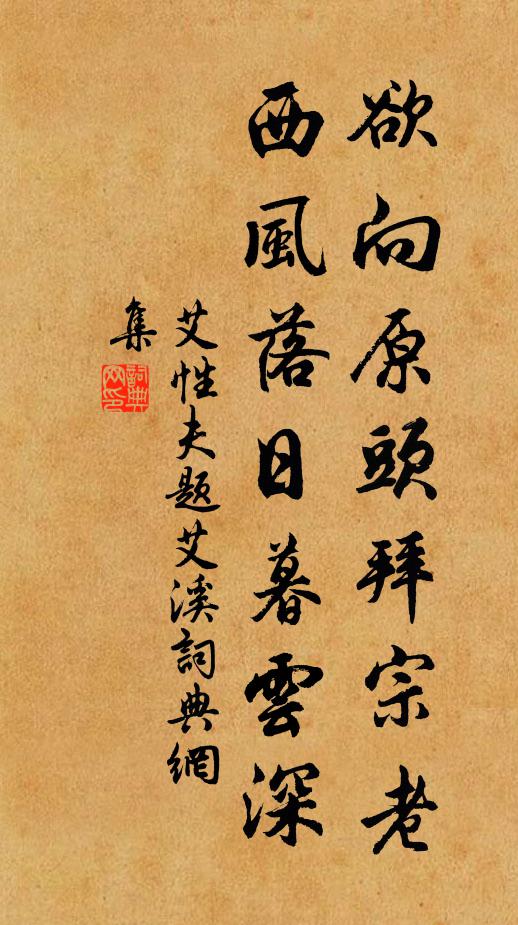 欲向原頭拜宗老
西風落日暮雲深
艾性夫題艾溪詞典網
集
詞典
网印